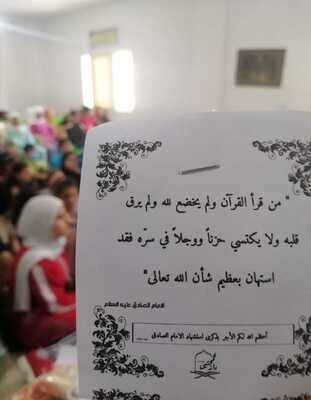 " من قرأ القرآن ولم يخضع لله ولم يرق
قلبه ولا يكتسي حزناً ووجلاً في سرّه فقد
استهان بعظيم شأن الله تعالى"
الامام الصادق عليه السلام
أعظم الله لكم الأجر بذكرى استشهاد الامام الصادق